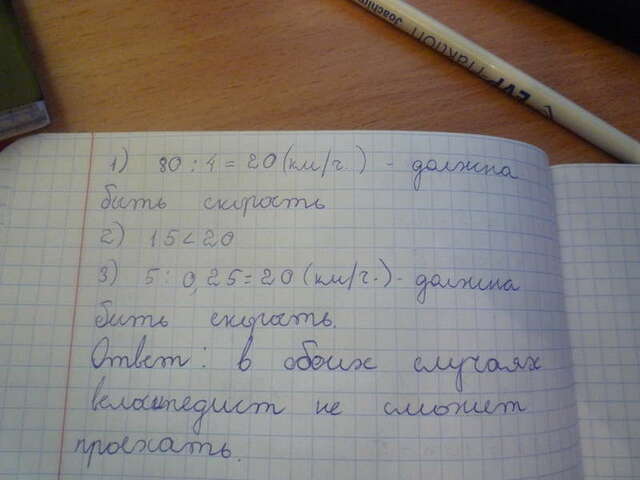 Joachim
Fraktion
1) 80 : 4 = 20 (км/ч.) - должна
бить скорость
2) 15 < 20
3) 5 : 0,25 = 20 (км/ч.) - должна
бить скорость.
Ответ: в обоих случаях
велосипедист не сможет
проехать.